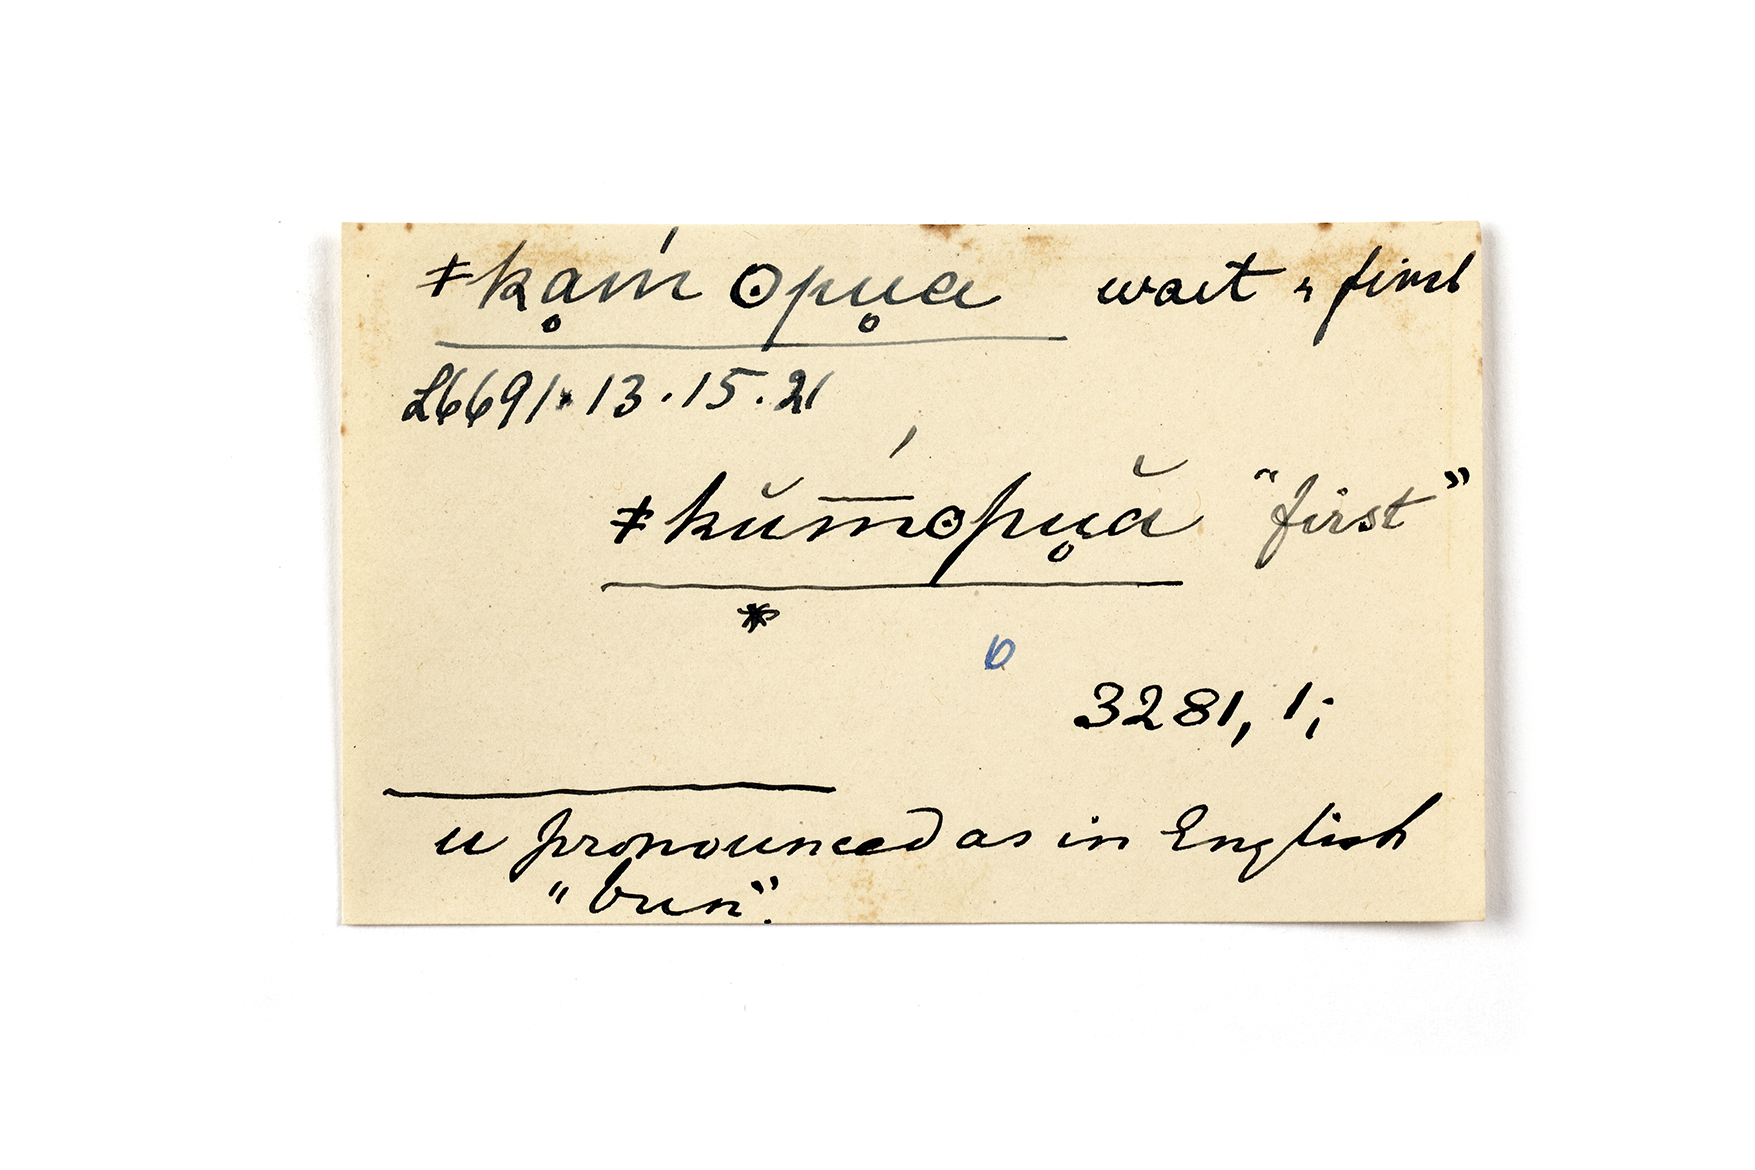 ǂkḁḿ ʘpu̥a wait a first
L6691.13.15.21
ǂkŭm̄́ʘpu̥ă "first"
*
b
3281, 1;
u pronounced as in English
"bun".